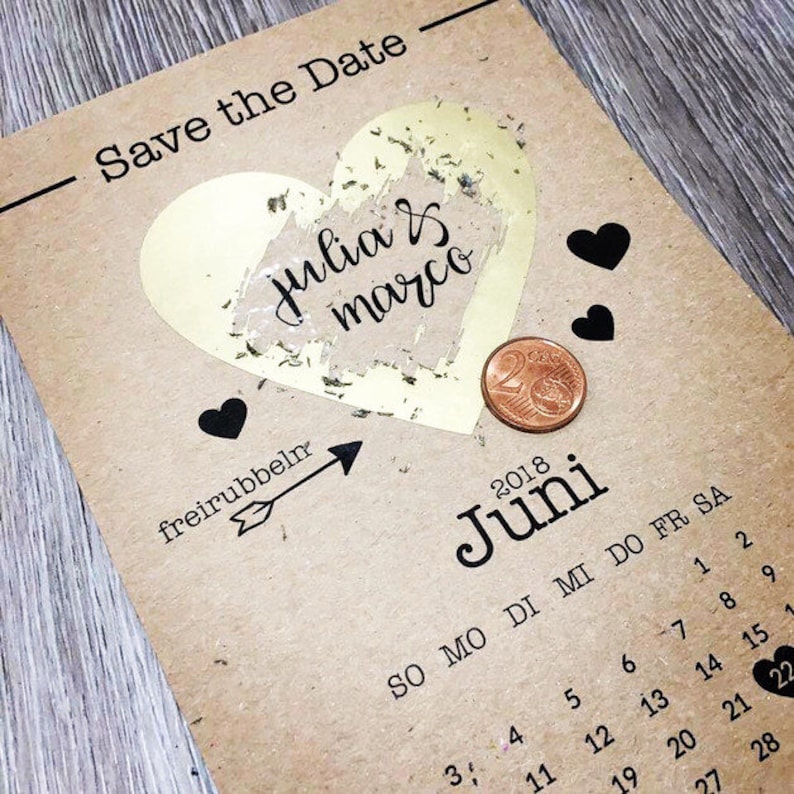 Save the Date
julia &
marco
2 EURO CENT
freirubbeln
2018
Juni
SO MO DI MI DO FR SA
1 2
3 4 5 6 7 8 9
11 12 13 14 15
19 20 21 22
27 28